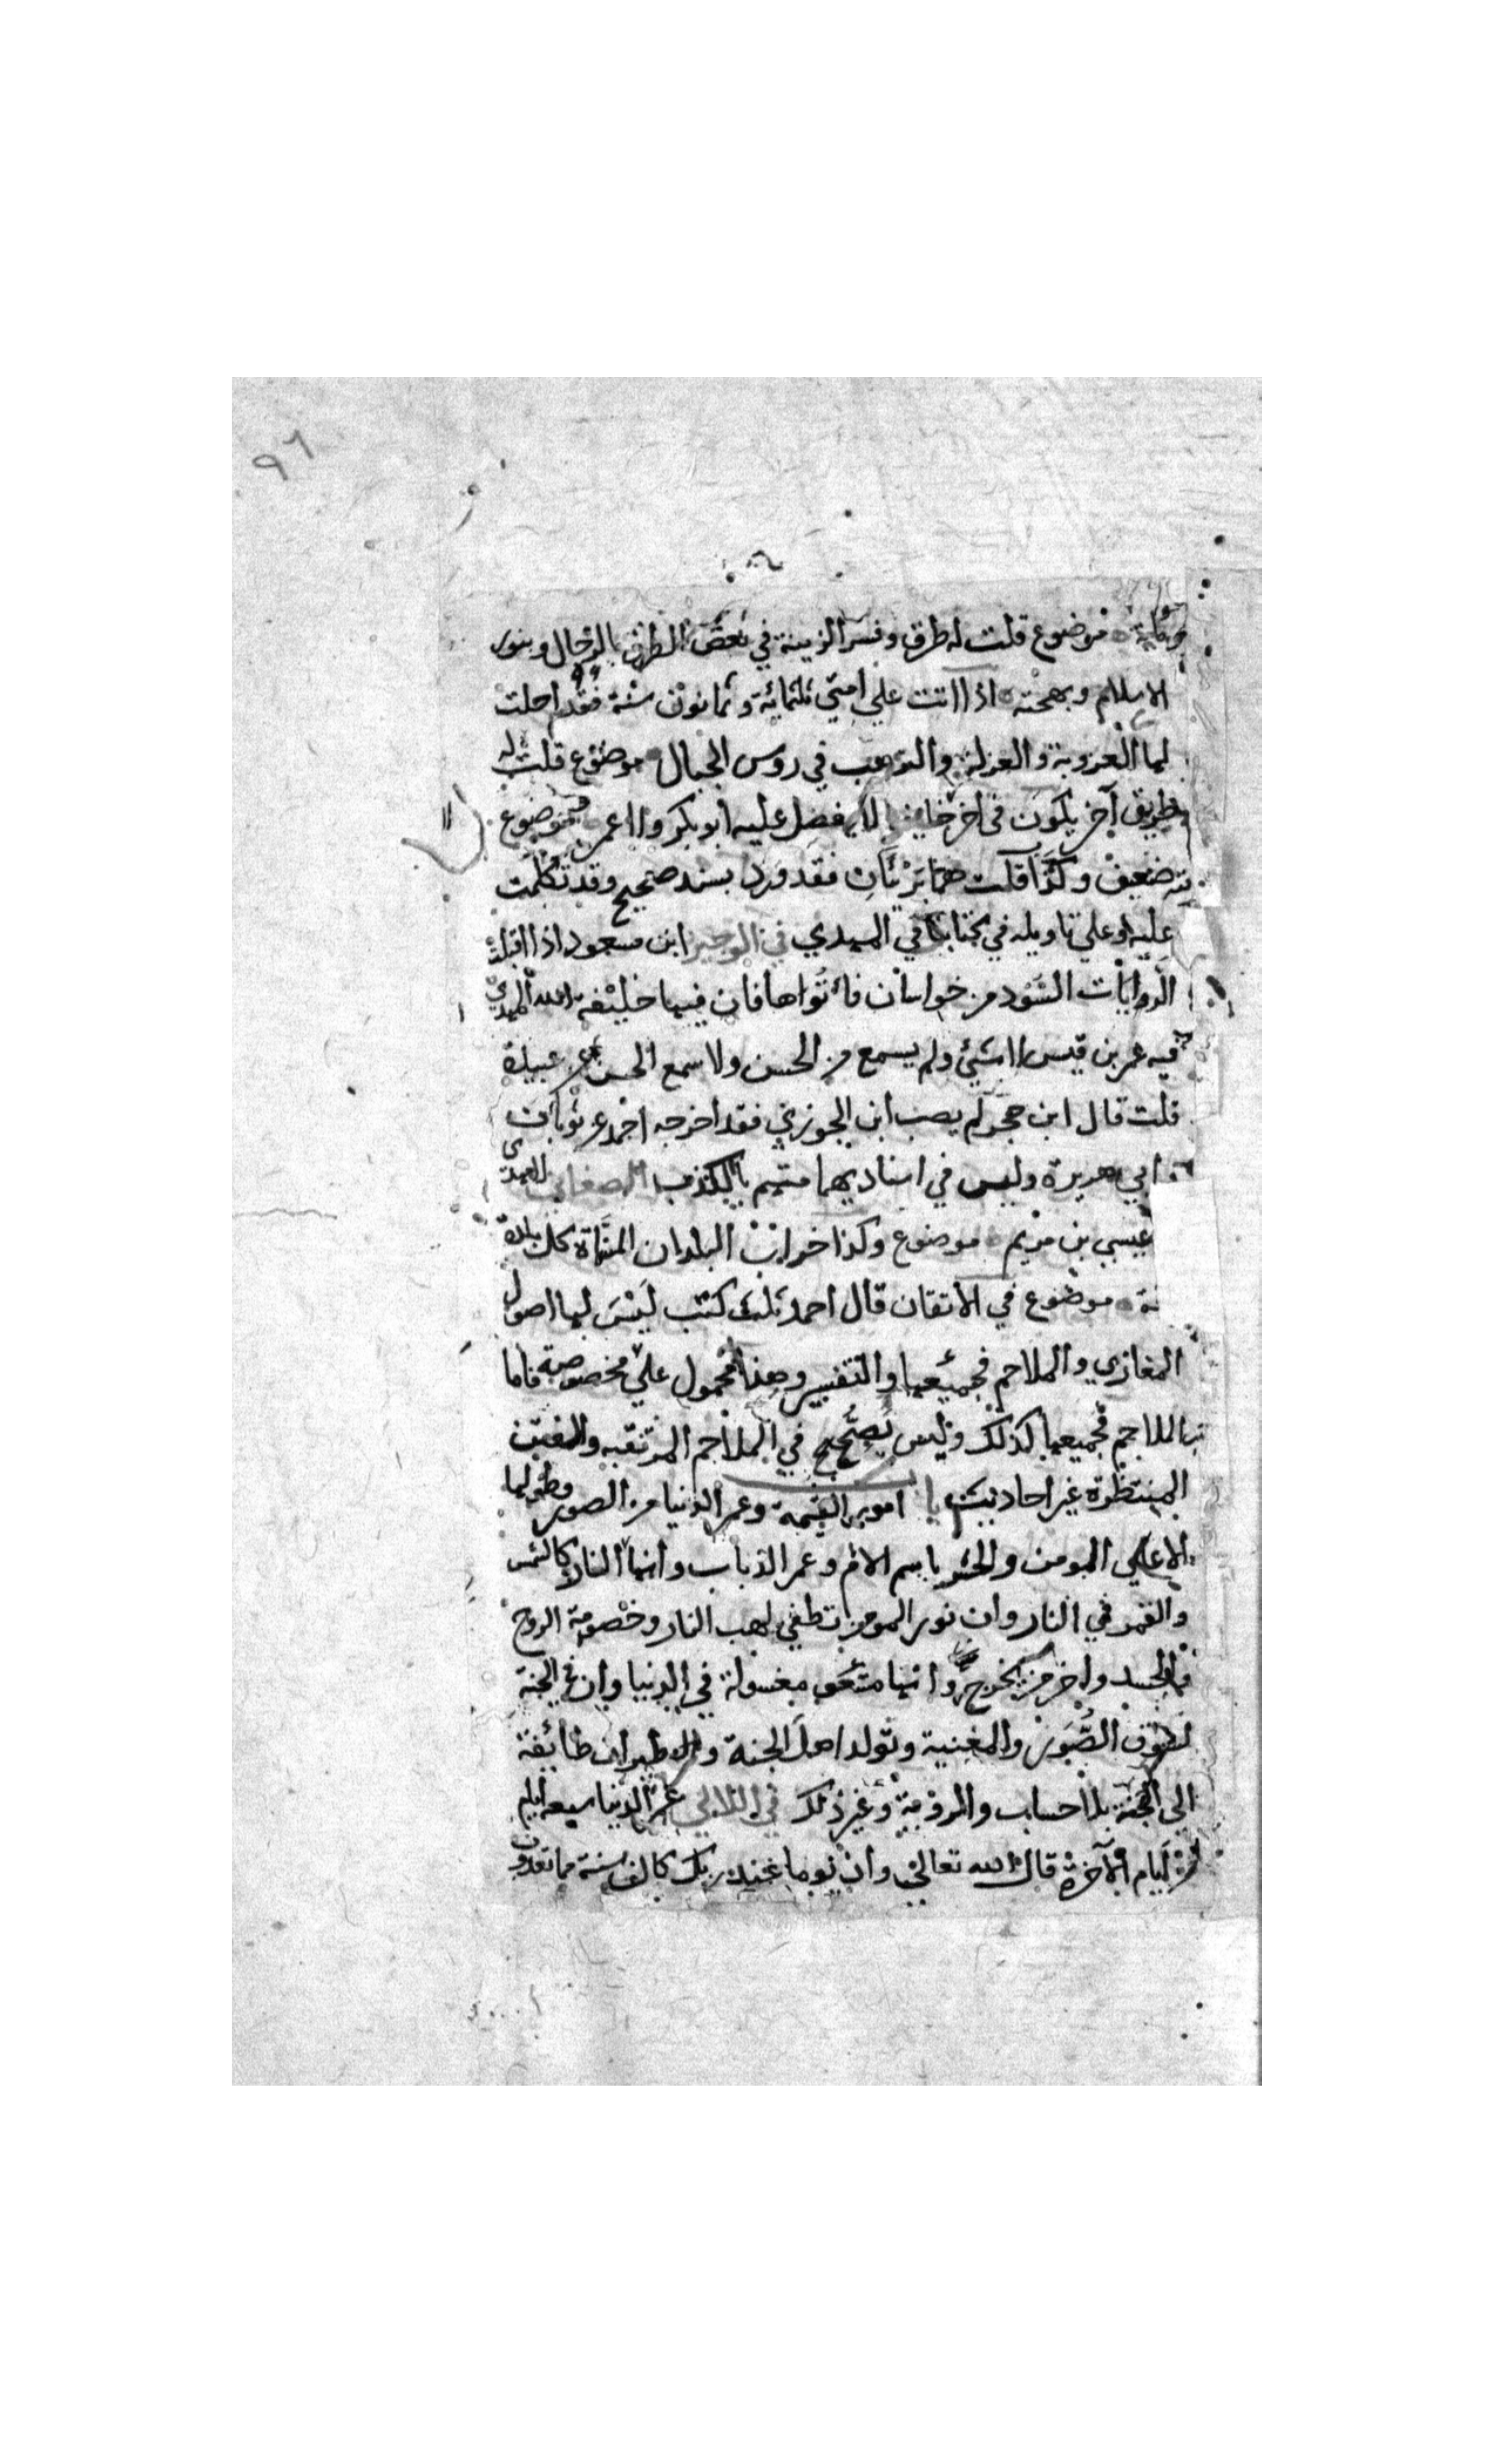 ٩٦
موضوع قلت له طرق وفسر الزينة في بعض الطرق بالرجال وبنور
الاسلام وبهجته اذا اتت علي امتي ثلثمائة وثمانون سنة فقد احلت
لها العزوبة والعزلة والترهب في روس الجبال موضوع قلت له
طريق آخر يكون في اخر خليفة لا يفضل عليه ابو بكر ولا عمر موضوع
ضعيف وكذا قلت هما بريئان فقد ورد بسند صحيح وقد تكلمت
عليه وعلي تاويله في كتابنا في المهدي في الوجيز ابن مسعود اذا اقبلت
الروايات السود من خراسان فأتوها فان فيها خليفة الله المهدي
فيه عمر بن قيس لا شئ ولم يسمع من الحسن ولا سمع الحسن عن عبيدة
قلت قال ابن حجر لم يصب ابن الجوزي فقد اخرجه احمد عن ثوبان
ابي هريرة وليس في اسناديهما متهم بالكذب الصغاني
عيسي بن مريم موضوع وكذا خراب البلدان المسماة كل بلدة
موضوع في الاتقان قال احمد ثلث كتب ليس لها اصول
المغازي والملاحم فجميعها والتفسير وهذا محمول علي مخصوصة فاما
الملاحم فجميعها كذلك وليس يصحح في الملاحم المرتقبه والفتن
المنتظرة غير احاديث امور القيمة وعمر الدنيا من الصور وطولها
الا علي المومن والحشر باسم الام وعمر الذباب وانها النار كالشمس
والقمر في النار وان نور المومن تطفي لهب النار وخصومة الروح
فالجسد واخر من يخرج وانها مغسولة في الدنيا وان في الجنة
الصور والمغنية وتولد اهل الجنة وطيران طائفة
الي الجنة بلا حساب والمروية وغير ذلك في اللالي عمر الدنيا سبعه ايام
من ايام الآخرة قال الله تعالي وان يوما عند ربك كالف سنة مما تعدون